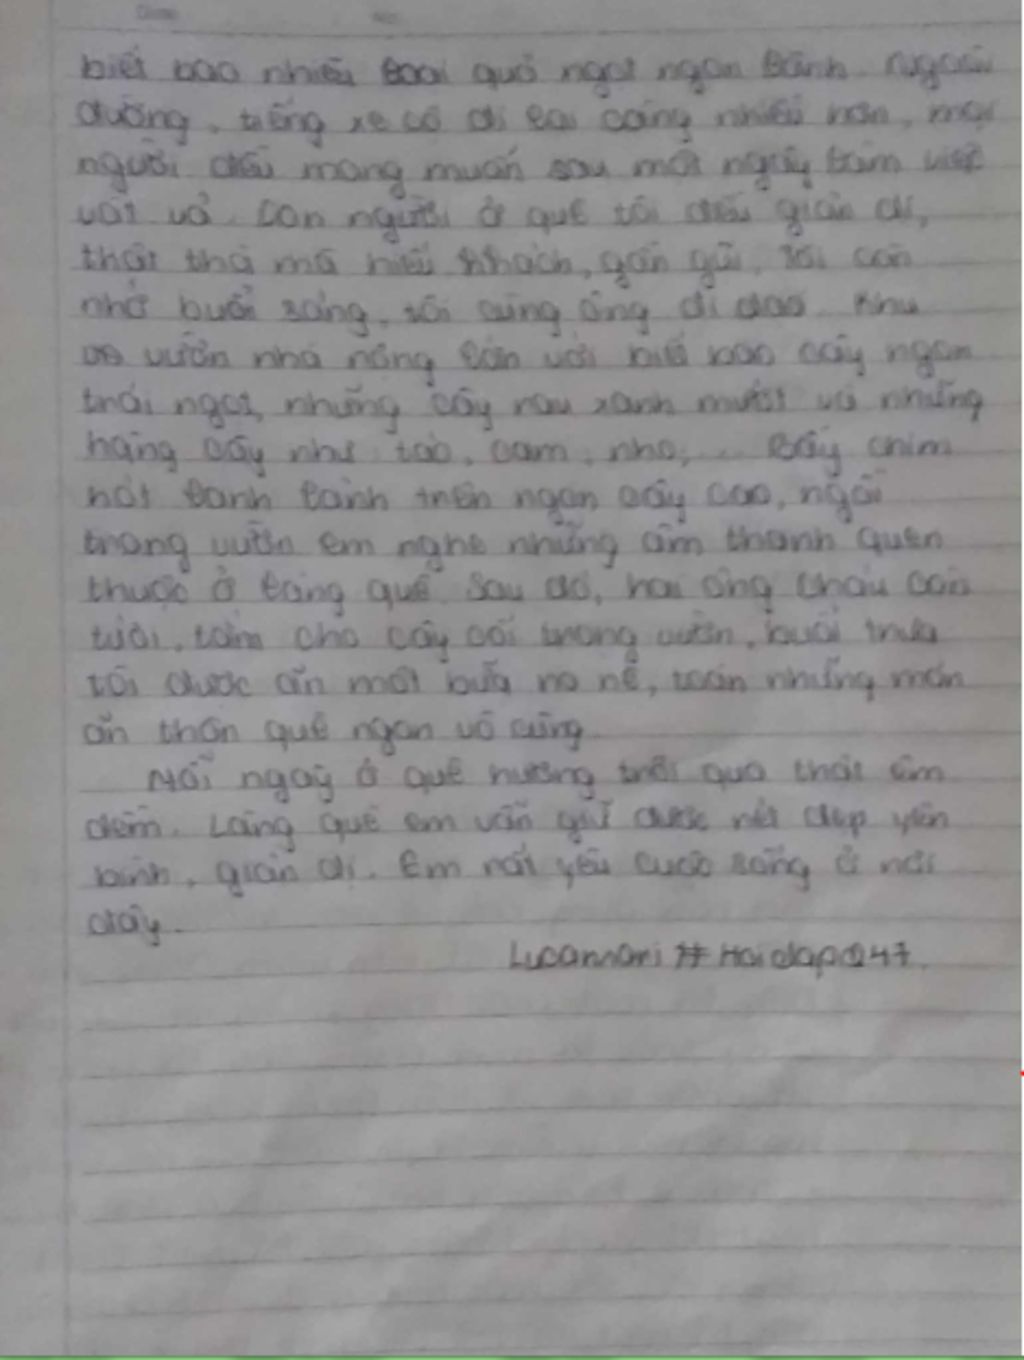 biết bao nhiêu loại quả ngọt ngon lành. Ngoài
đường, tiếng xe cộ đi lại càng nhiều hơn, mọi
người đều mong muốn sau một ngày làm việc
vất vả. Con người ở quê tôi đều giản dị,
thật thà mà hiếu khách, gần gũi. Tôi còn
nhớ buổi sáng, tôi cùng ông đi dạo khu
vườn nhà nông lớn với biết bao cây ngon
trái ngọt, những cây rau xanh mướt và những
hàng cây như táo, cam, nho,... Bầy chim
hót lanh lảnh trên ngọn cây cao, ngồi
trong vườn em nghe những âm thanh quen
thuộc ở làng quê. Sau đó, hai ông cháu còn
tưới, tắm cho cây cối trong vườn, buổi trưa
tôi được ăn một bữa no nê, toàn những món
ăn thôn quê ngon vô cùng.
Mỗi ngày ở quê hương trôi qua thật êm
đềm. Làng quê em vẫn giữ được nét đẹp yên
bình, giản dị. Em rất yêu cuộc sống ở nơi
đây.
Lucannari # Hoidap247.